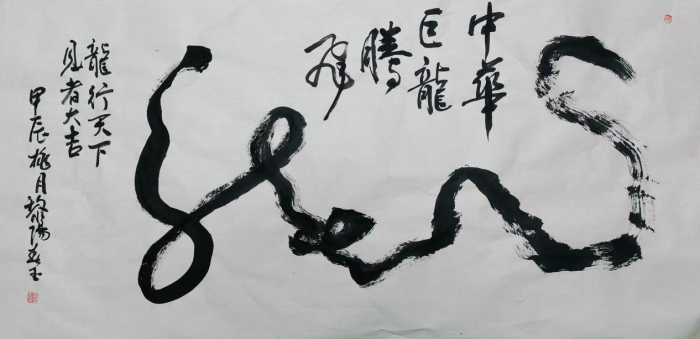 中華
巨龍
騰
飛
龍行天下
見者大吉
甲辰桃月